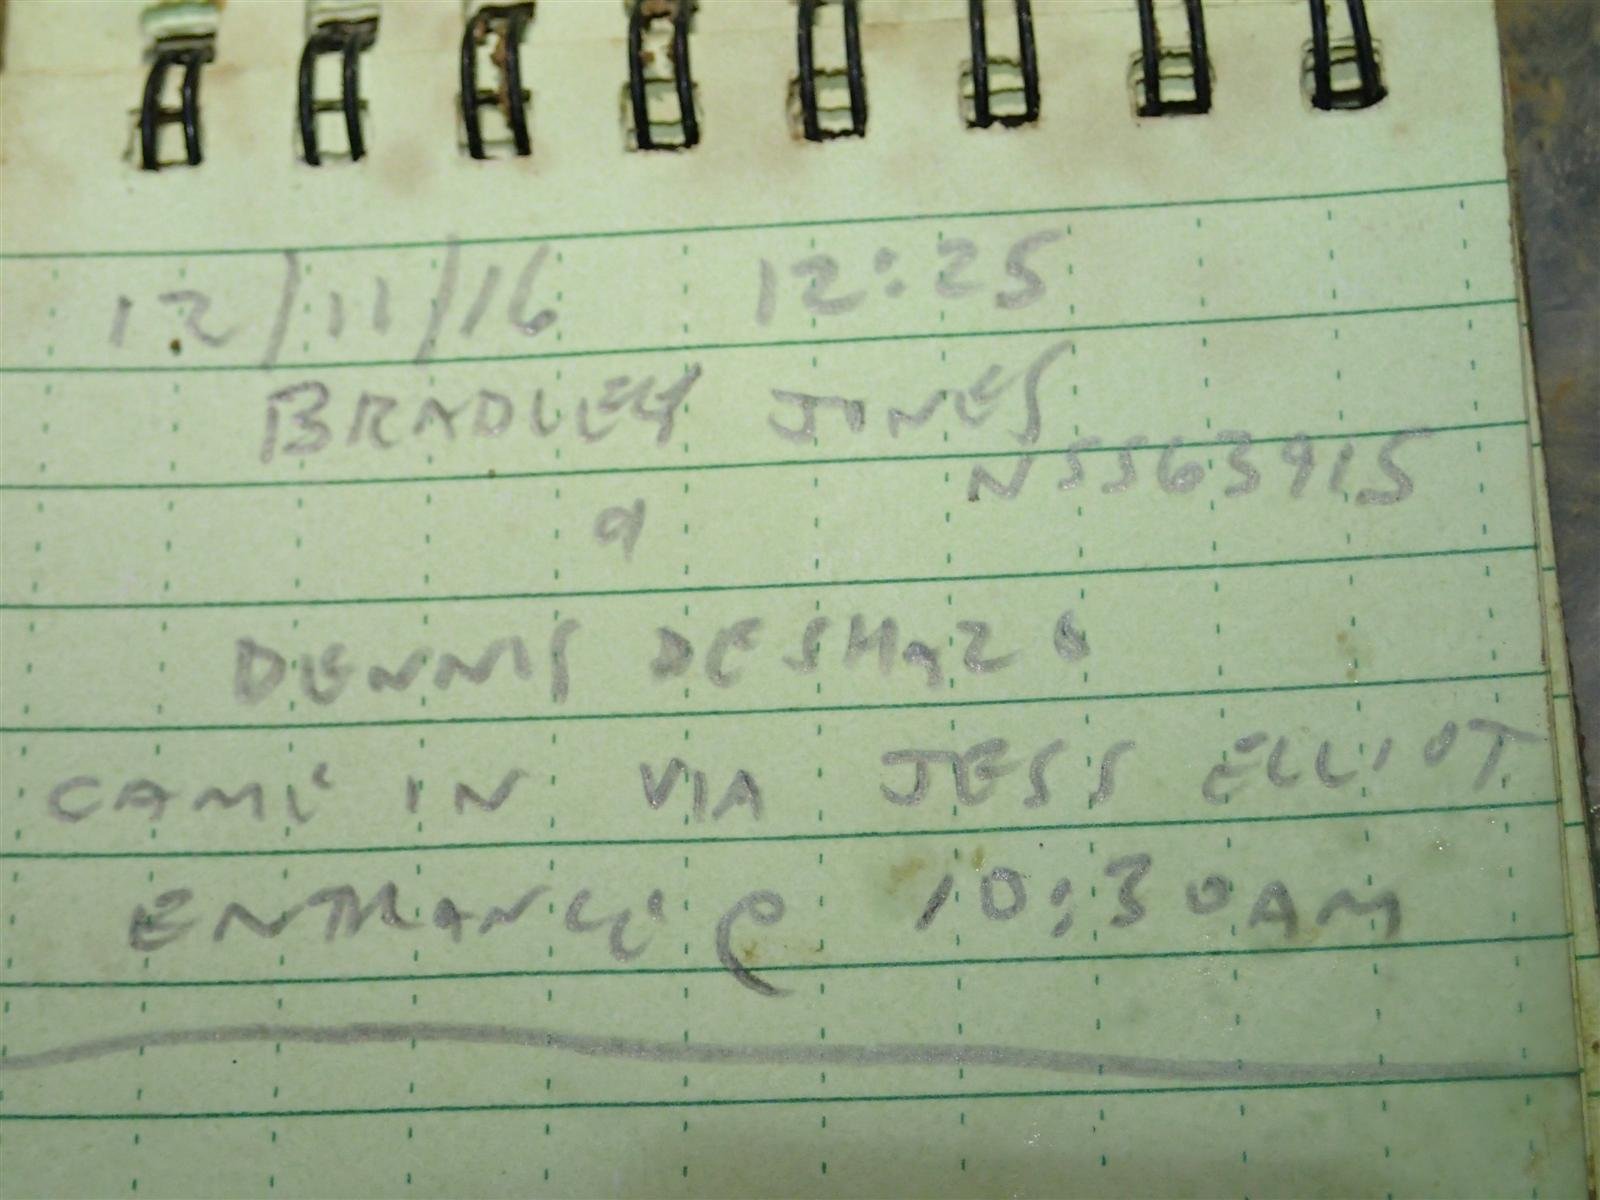 12/11/16 12:25
BRADLEY JONES
NSS63915
&
DENNIS DESHAZO
CAME IN VIA JESS ELLIOT
ENTRANCE @ 10:30AM